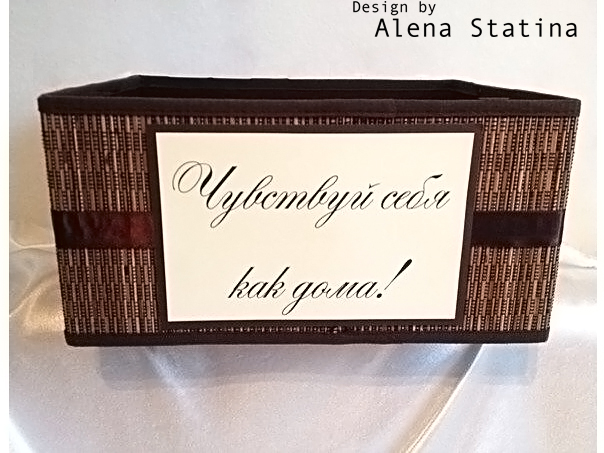 Design by
Alena Statina
Чувствуй себя
как дома!